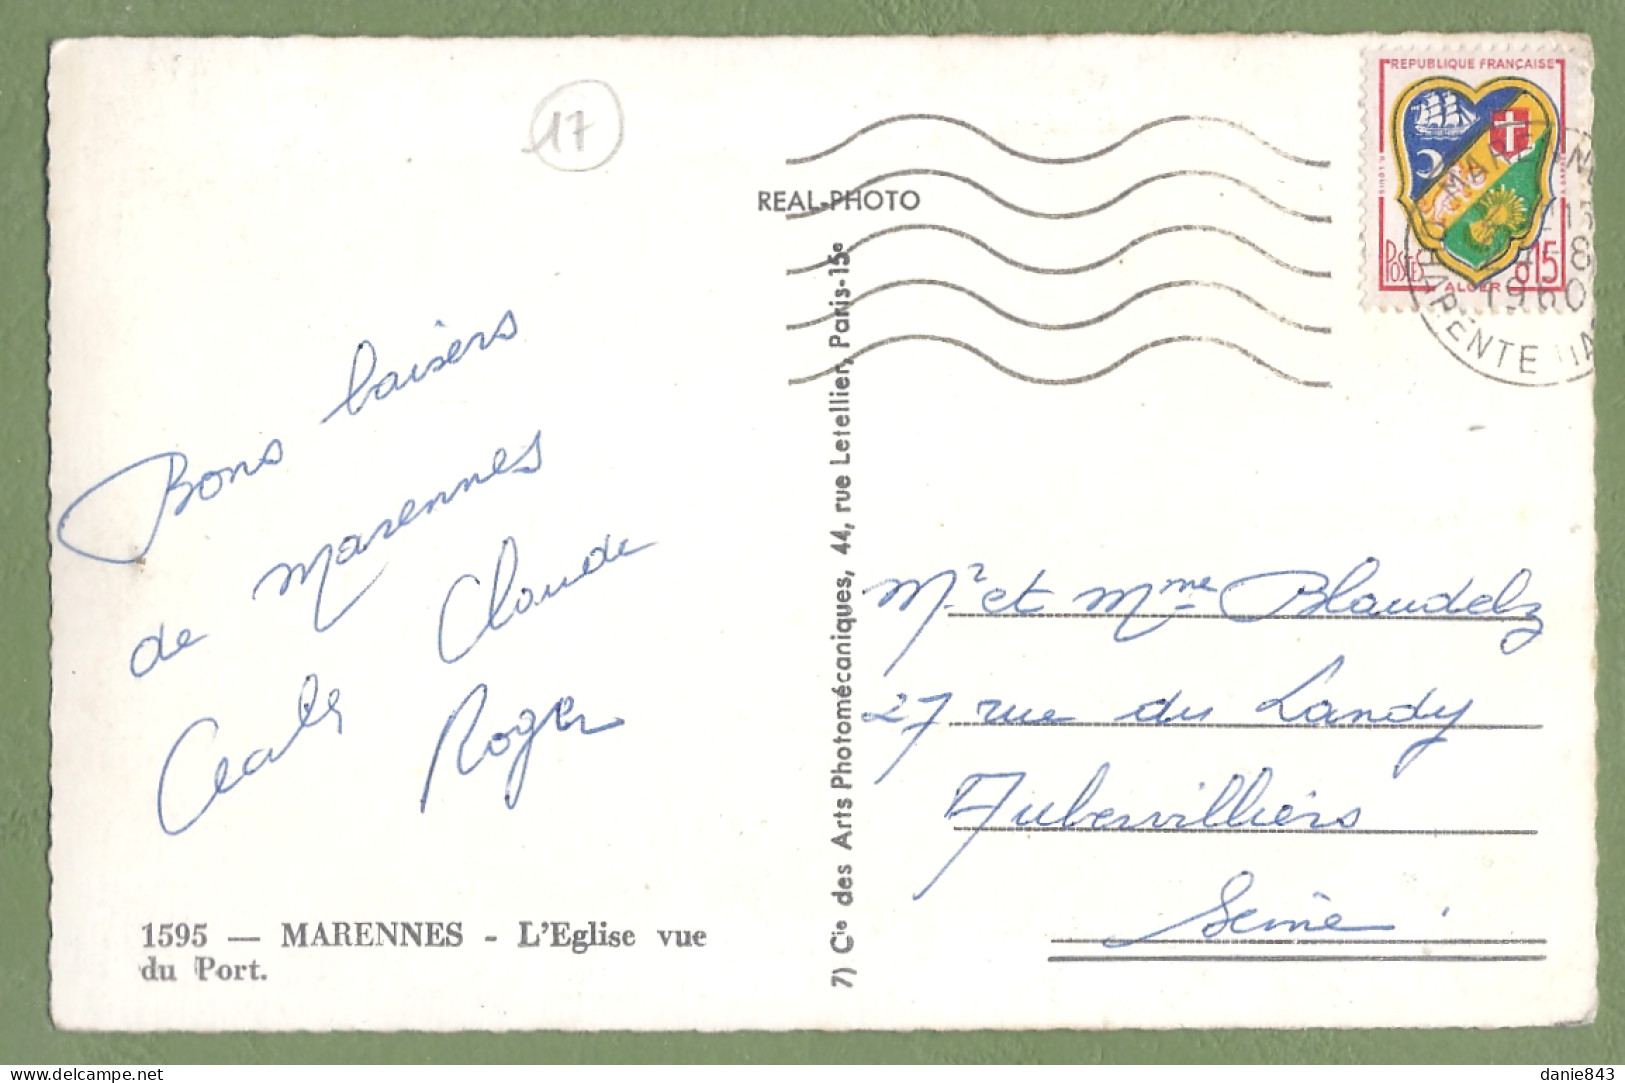 17
REAL-PHOTO
REPUBLIQUE FRANÇAISE
POSTES
ALGER
0.15
15
-8
1960
CHARENTE
Bons baisers
de Marennes
Claude
Roger
1595 — MARENNES - L'Eglise vue
du Port.
7) Cie des Arts Photomécaniques, 44, rue Letellier, Paris-15e
Mr et Mme Blaudelz
27 rue du Landy
Aubervilliers
Seine
danie843